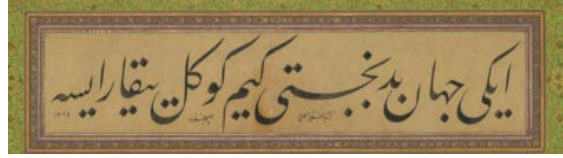 ایکی جهان بدبختی کیم کوکل ییقار ایسه